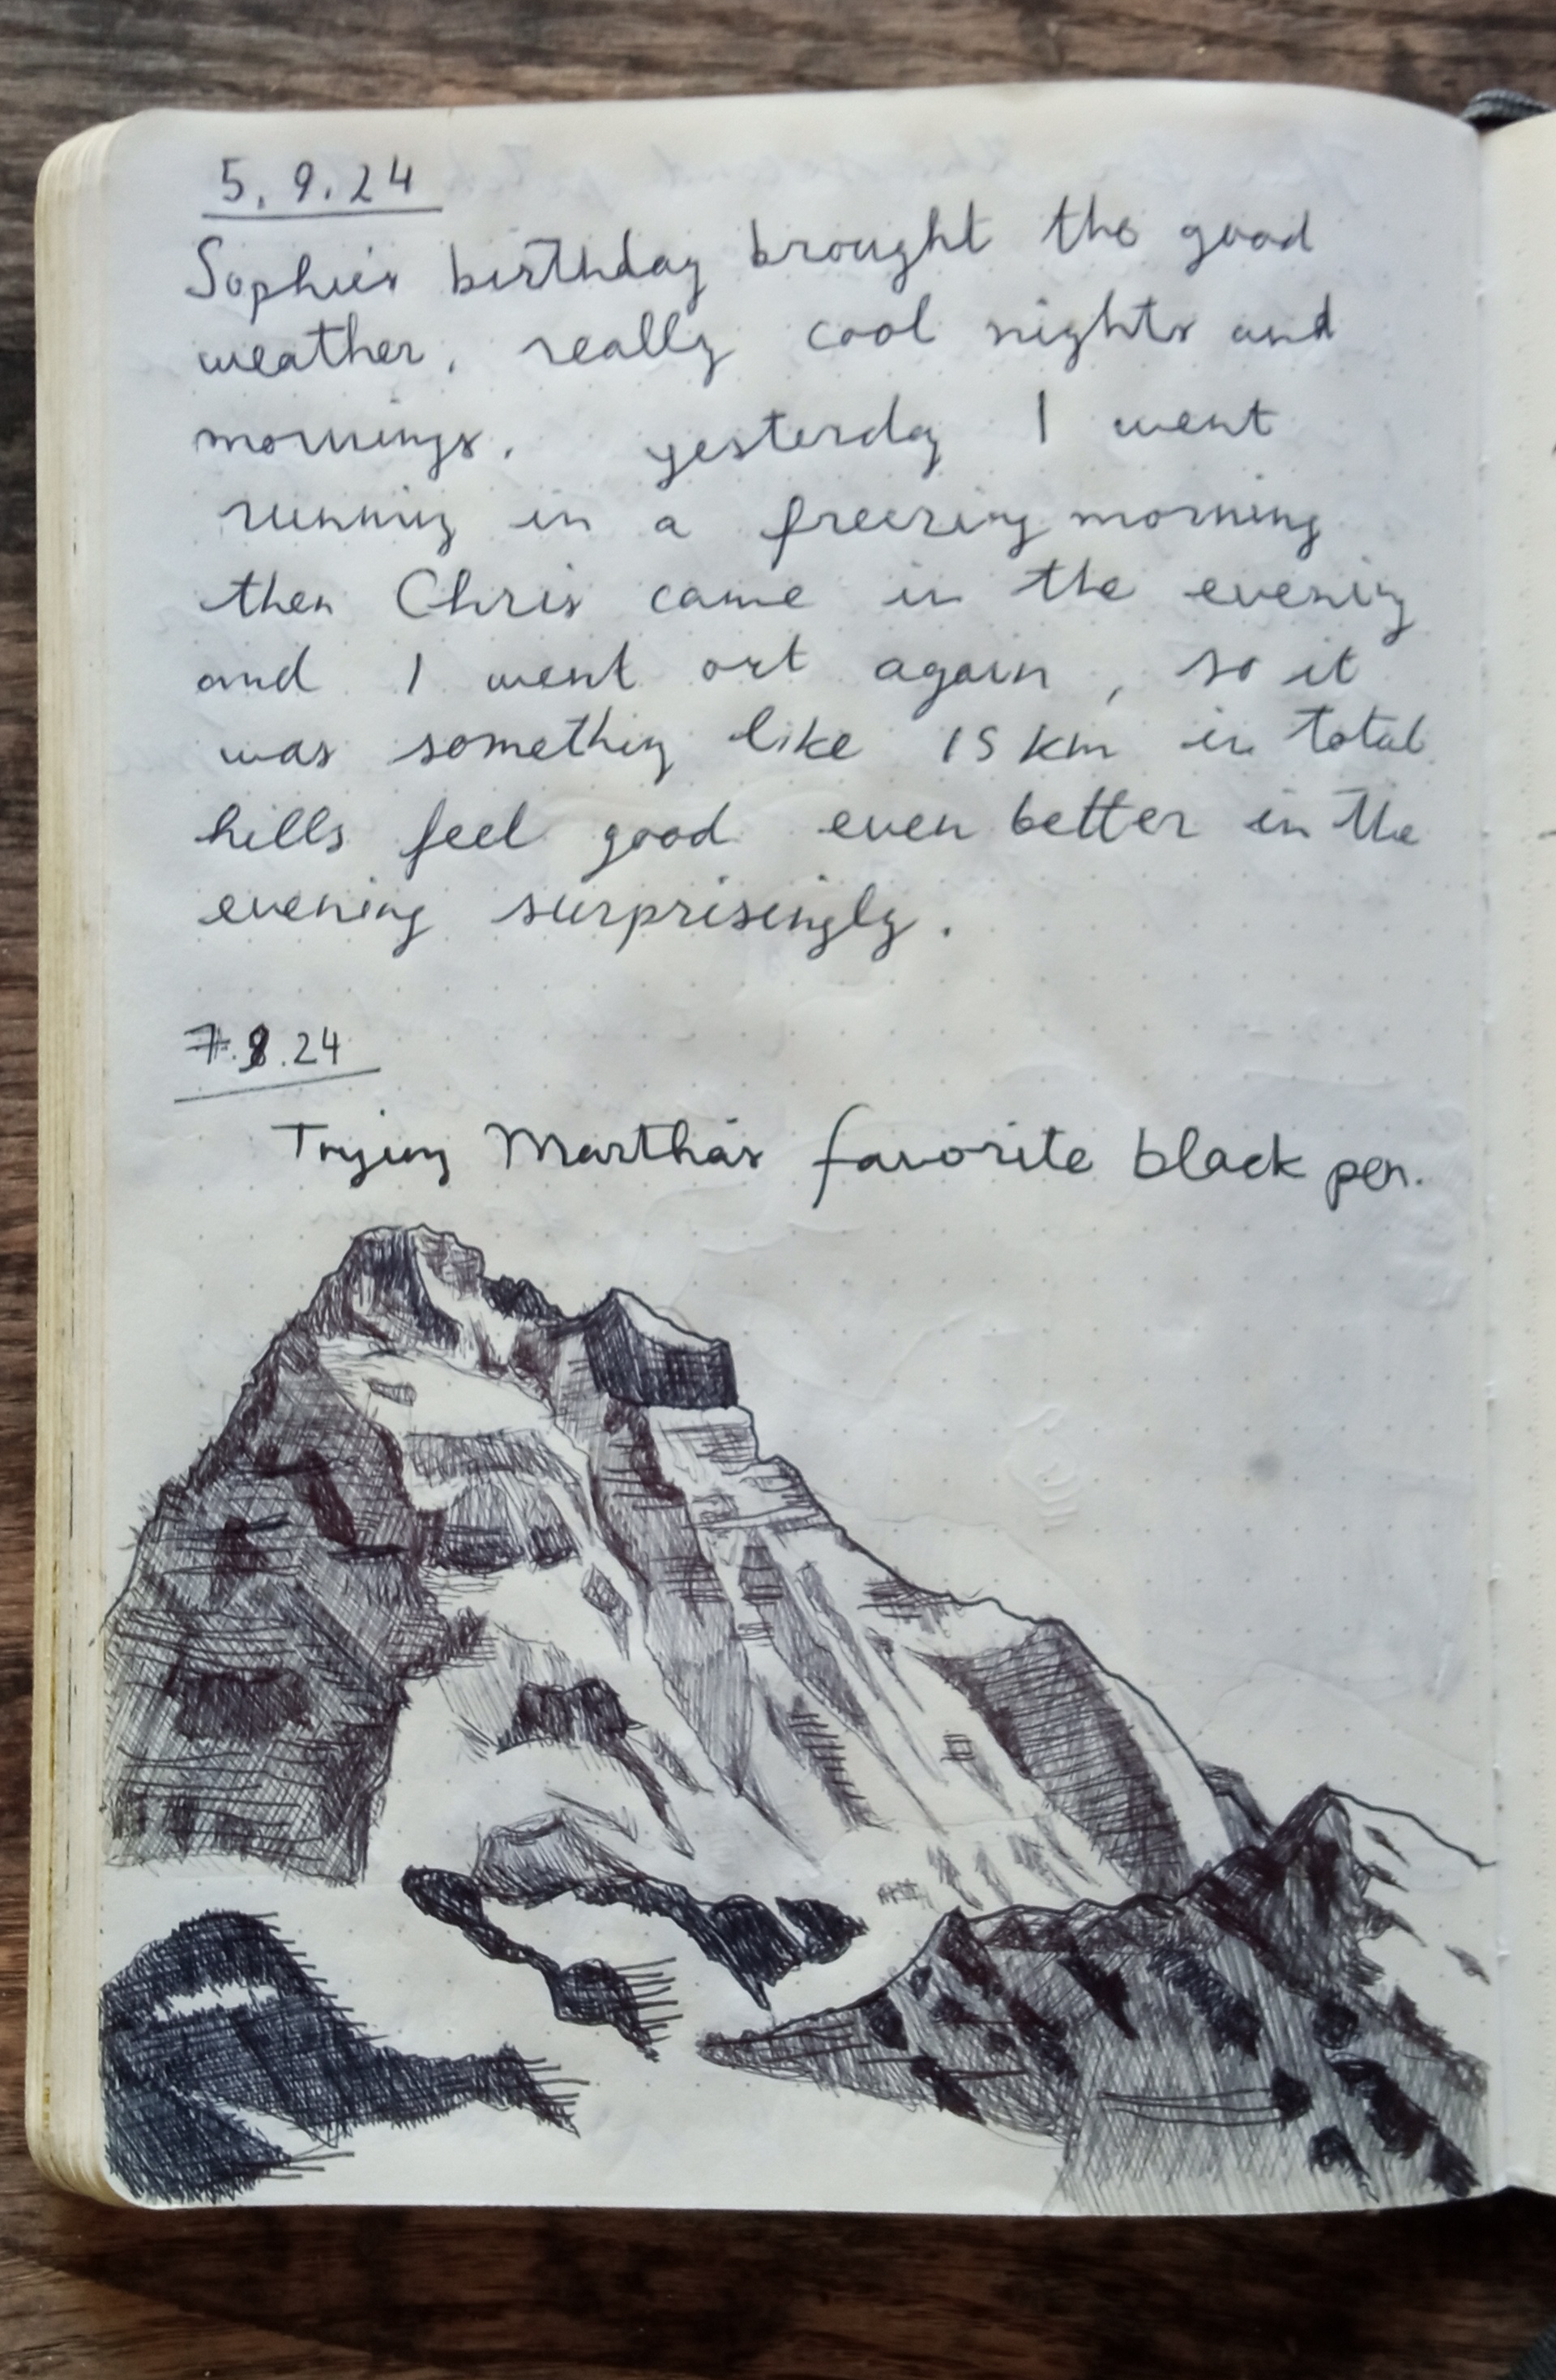 5.9.24
Sophie's birthday brought the good
weather, really cool nights and
mornings. yesterday I went
running in a freezing morning
then Chris came in the evening
and I went out again, so it
was something like 15 km in total
hills feel good even better in the
evening surprisingly.
7.9.24
Trying Martha's favorite black pen.